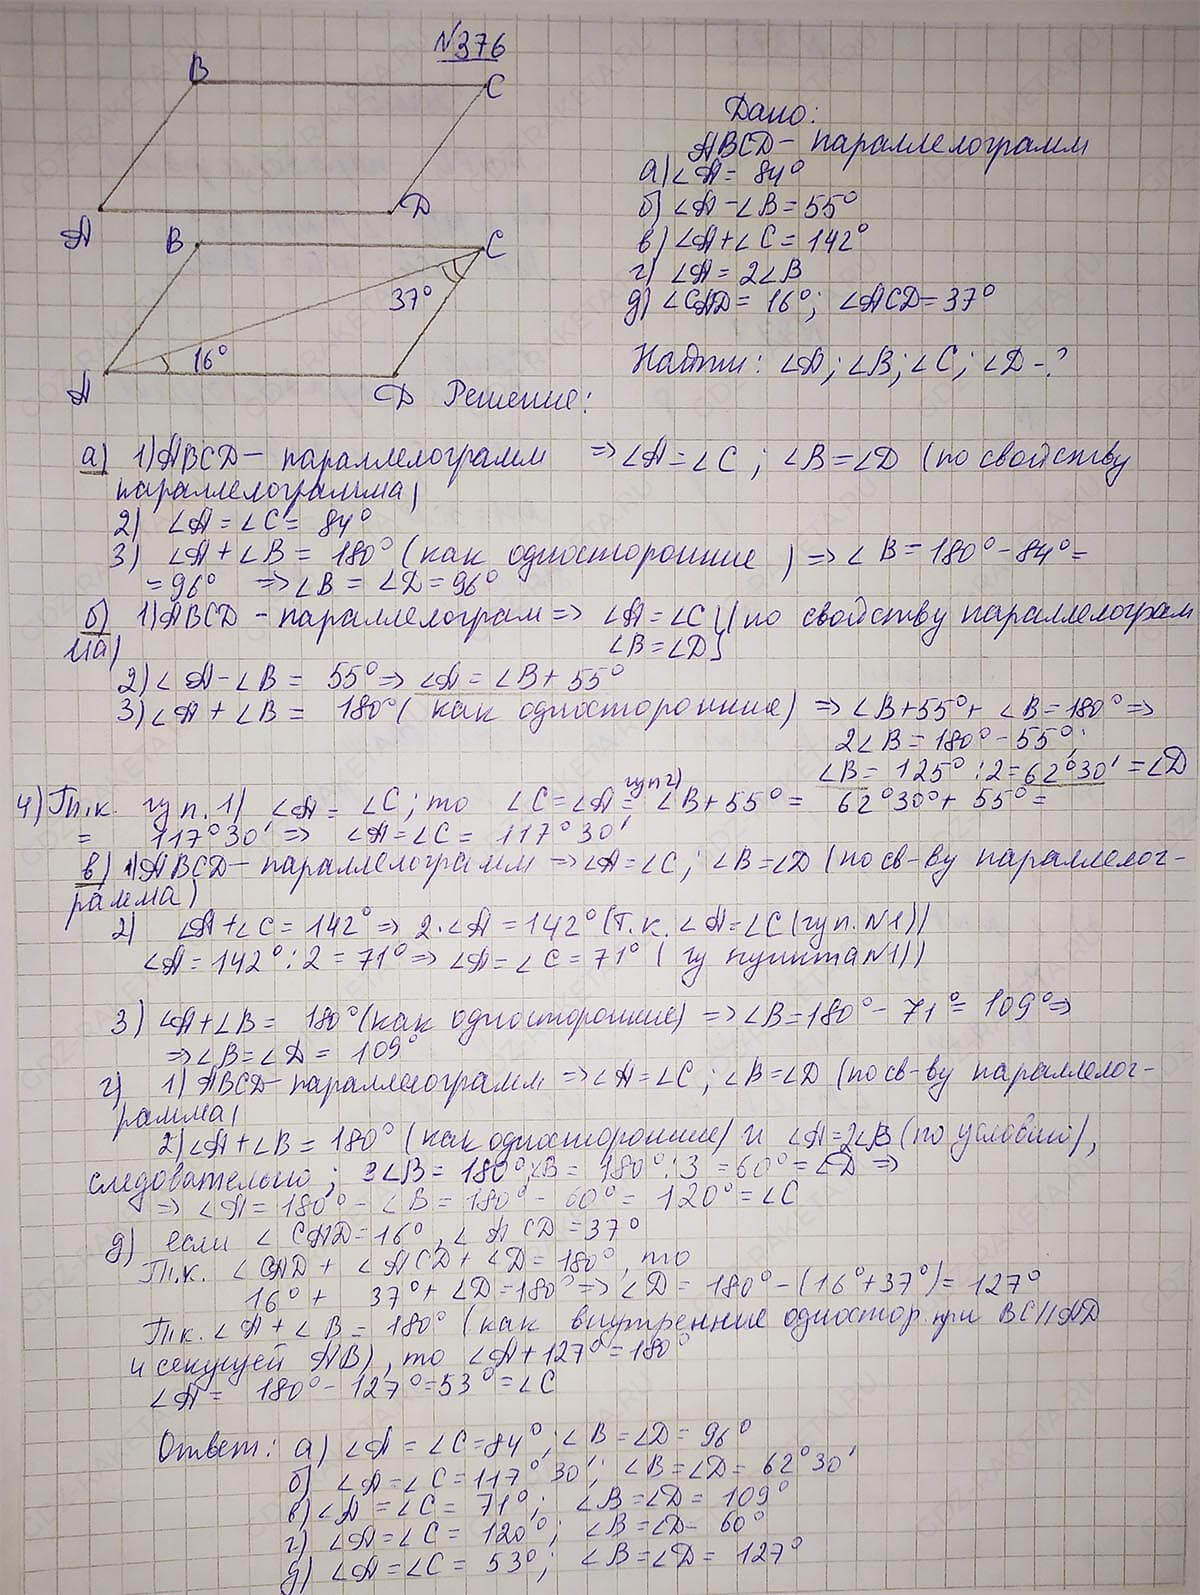 №376
B
C
A
D
Дано:
ABCD - параллелограмм
а) ∠A = 84°
б) ∠A - ∠B = 55°
в) ∠A + ∠C = 142°
г) ∠A = 2∠B
д) ∠CAD = 16°; ∠ACD = 37°
Найти: ∠A; ∠B; ∠C; ∠D - ?
B
C
37°
16°
A
D
Решение:
а) 1) ABCD - параллелограмм => ∠A = ∠C; ∠B = ∠D (по свойству
параллелограмма)
2) ∠A = ∠C = 84°
3) ∠A + ∠B = 180° (как односторонние) => ∠B = 180° - 84° =
= 96° => ∠B = ∠D = 96°
б) 1) ABCD - параллелограм => ∠A = ∠C } (по свойству параллелограм
∠B = ∠D }
ма)
2) ∠A - ∠B = 55° => ∠A = ∠B + 55°
3) ∠A + ∠B = 180° (как односторонние) => ∠B + 55° + ∠B = 180° =>
2∠B = 180° - 55°;
∠B = 125° : 2 = 62°30' = ∠D
из п 2)
4) Т.к. из п. 1) ∠A = ∠C; то ∠C = ∠A = ∠B + 55° = 62°30° + 55° =
= 117°30' => ∠A = ∠C = 117°30'
в) 1) ABCD - параллелограмм => ∠A = ∠C; ∠B = ∠D (по св-ву параллелог-
рамма)
2) ∠A + ∠C = 142° => 2·∠A = 142° (т.к. ∠A = ∠C (из п. N1))
∠A = 142° : 2 = 71° => ∠A = ∠C = 71° (из пункта N1))
3) ∠A + ∠B = 180° (как односторонние) => ∠B = 180° - 71° = 109° =>
=> ∠B = ∠D = 109°
г) 1) ABCD - параллелограмм => ∠A = ∠C; ∠B = ∠D (по св-ву параллелог-
рамма)
2) ∠A + ∠B = 180° (как односторонние) и ∠A = 2∠B (по условию),
следовательно; 3∠B = 180°; ∠B = 180° : 3 = 60° = ∠D =>
=> ∠A = 180° - ∠B = 180° - 60° = 120° = ∠C
д) если ∠CAD = 16°, ∠ACD = 37°
Т.к. ∠CAD + ∠ACD + ∠D = 180°, то
16° + 37° + ∠D = 180° => ∠D = 180° - (16° + 37°) = 127°
Т.к. ∠A + ∠B = 180° (как внутренние одностор. при BC||AD
и секущей AB), то ∠A + 127° = 180°
∠A = 180° - 127° = 53° = ∠C
Ответ: а) ∠A = ∠C = 84°; ∠B = ∠D = 96°
б) ∠A = ∠C = 117°30'; ∠B = ∠D = 62°30'
в) ∠A = ∠C = 71°; ∠B = ∠D = 109°
г) ∠A = ∠C = 120°; ∠B = ∠D - 60°
д) ∠A = ∠C = 53°; ∠B = ∠D = 127°